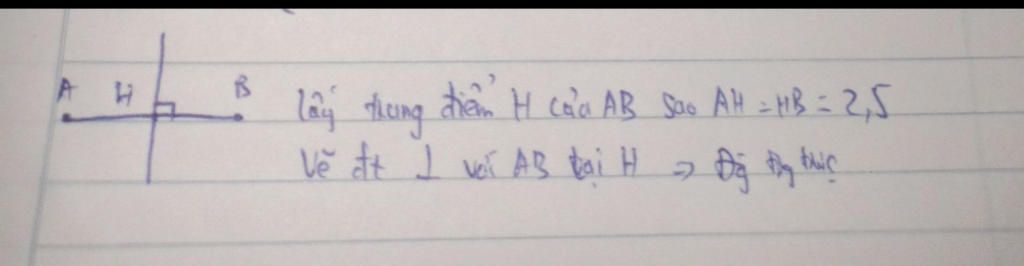 A H B
lấy trung điểm H của AB sao AH = HB = 2,5
Vẽ đt ⊥ với AB tại H =>